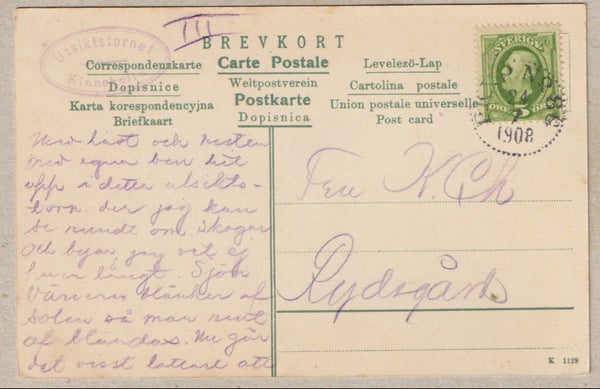 III
Utsiktstornet
Kinnekulle
BREVKORT
Correspondenzkarte
Carte Postale
Levelezö-Lap
Dopisnice
Weltpostverein
Cartolina postale
Karta korespondencyjna
Postkarte
Union postale universelle
Briefkaart
Dopisnica
Post card
SVERIGE
5
ÖRE
24
7
1908
Med häst och resten
med egna ben hit
upp i detta utsikts-
torn, der jag kan
se rundt om skogar
och byar, jag vet ej
hur långt. Sjön
Vänern blänker af
solen så man rent
af bländas. Nu går
det visst lättare att
Fru K. Ch
Rydsgård
K 1129